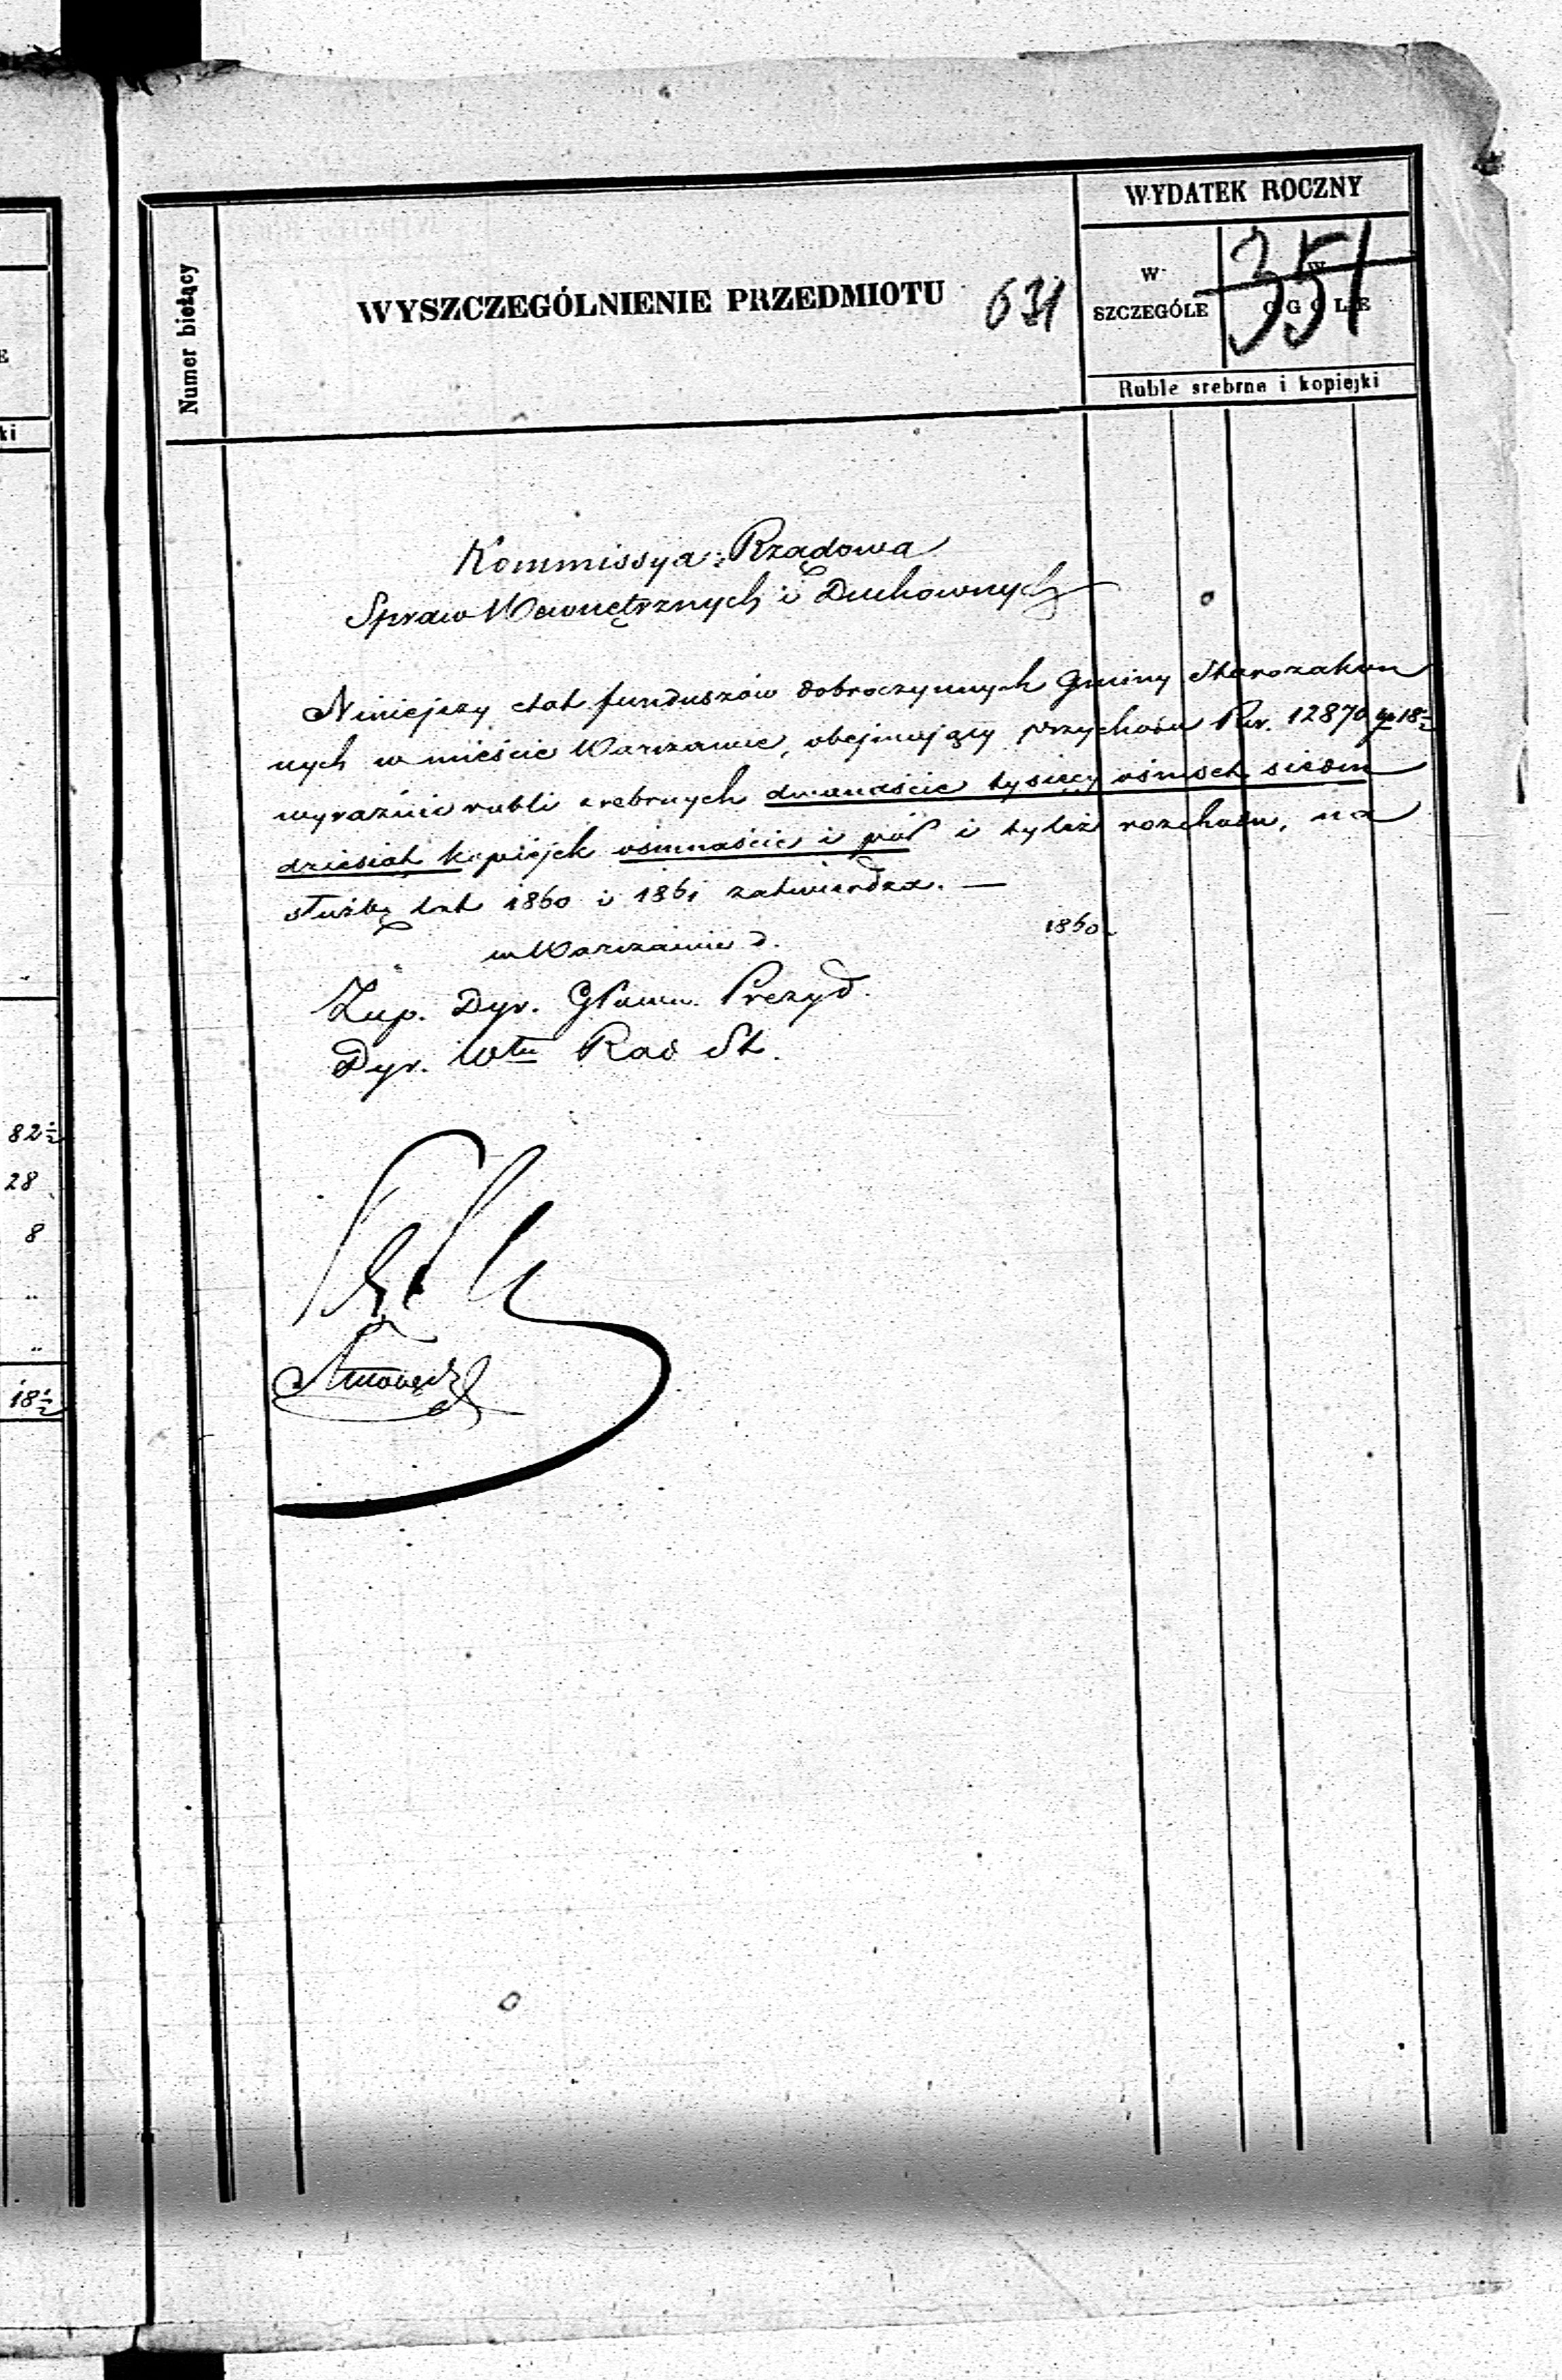 E
ki
82½
28
8
18½
WYDATEK ROCZNY
Numer bieżący
WYSZCZEGÓLNIENIE PRZEDMIOTU
631
W
SZCZEGÓLE
W
OGÓLE
351
Ruble srebrne i kopiejki
Kommissya Rządowa
Spraw Wewnętrznych i Duchownych
Niniejszy etat funduszów dobroczynnych Gminy Starozakon
nych w mieście Warszawie, obejmujący przychodu Rsr. 12870 kp 18½
wyraźnie rubli srebrnych dwanaście tysięcy ośmset siedm
dziesiąt kopiejek ośmnaście i pół i tyleż rozchodu, na
służbę lat 1860 i 1861 zatwierdza. —
w Warszawie d. 1860
Zup. Dyr. Główn. Prezyd.
Dyr. Włu Rad St.